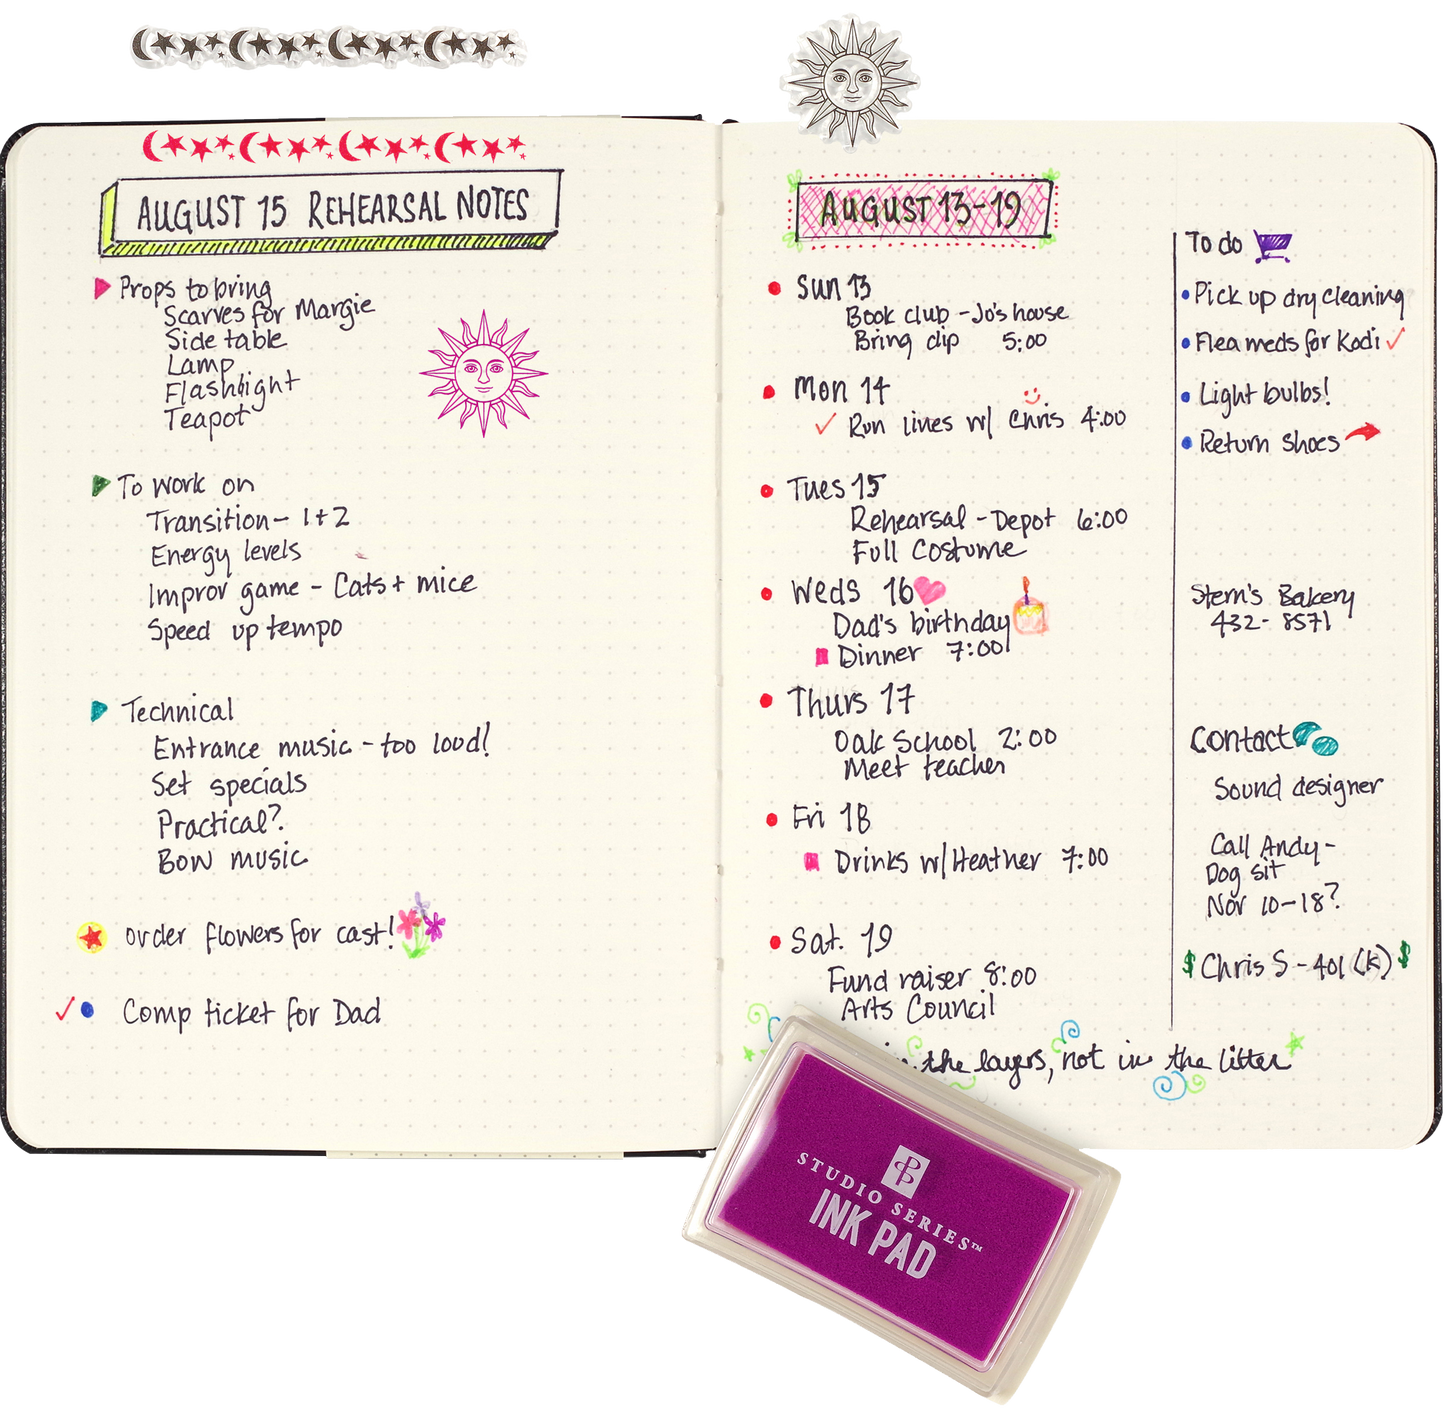 AUGUST 15 REHEARSAL NOTES
Props to bring
Scarves for Margie
Side table
Lamp
Flashlight
Teapot
To work on
Transition- 1+2
Energy levels
Improv game - Cats + mice
Speed up tempo
Technical
Entrance music - too loud!
Set specials
Practical?
Bow music
order flowers for cast!
Comp ticket for Dad
AUGUST 13-19
Sun 13
Book club - Jo's house
Bring dip 5:00
Mon 14
Run lines w/ Chris 4:00
Tues 15
Rehearsal - Depot 6:00
Full Costume
Weds 16
Dad's birthday
Dinner 7:00
Thurs 17
Oak School 2:00
Meet teacher
Fri 18
Drinks w/ Heather 7:00
Sat. 19
Fund raiser 8:00
Arts Council
in the layers, not in the litter
To do
Pick up dry cleaning
Flea meds for Kodi
Light bulbs!
Return shoes
Stern's Bakery
432-8571
Contact
Sound designer
Call Andy -
Dog sit
Nov 10-18?
$ Chris S - 401(k) $
STUDIO SERIES™
INK PAD